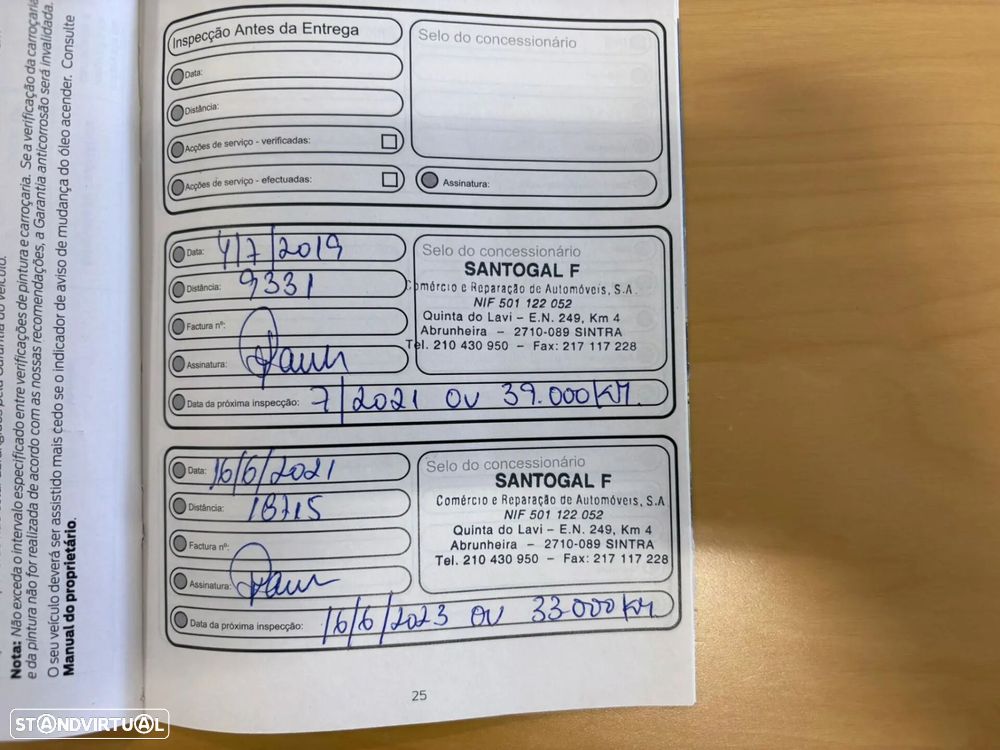 Nota: Não exceda o intervalo especificado entre verificações de pintura e carroçaria. Se a verificação da carroçaria
e da pintura não for realizada de acordo com as nossas recomendações, a Garantia anticorrosão será invalidada.
O seu veículo deverá ser assistido mais cedo se o indicador de aviso de mudança do óleo acender. Consulte
Manual do proprietário.
Inspecção Antes da Entrega
Data:
Distância:
Acções de serviço - verificadas:
Acções de serviço - efectuadas:
Selo do concessionário
Assinatura:
Data: 4/7/2019
Distância: 9331
Factura nº:
Assinatura:
Data da próxima inspecção: 7/2021 OU 39.000 KM.
Selo do concessionário
SANTOGAL F
Comércio e Reparação de Automóveis, S.A.
NIF 501 122 052
Quinta do Lavi – E.N. 249, Km 4
Abrunheira – 2710-089 SINTRA
Tel. 210 430 950 – Fax: 217 117 228
Data: 16/6/2021
Distância: 18715
Factura nº:
Assinatura:
Data da próxima inspecção: 16/6/2023 OU 33.000 KM
Selo do concessionário
SANTOGAL F
Comércio e Reparação de Automóveis, S.A
NIF 501 122 052
Quinta do Lavi – E.N. 249, Km 4
Abrunheira – 2710-089 SINTRA
Tel. 210 430 950 – Fax: 217 117 228
25
STANDVIRTUAL